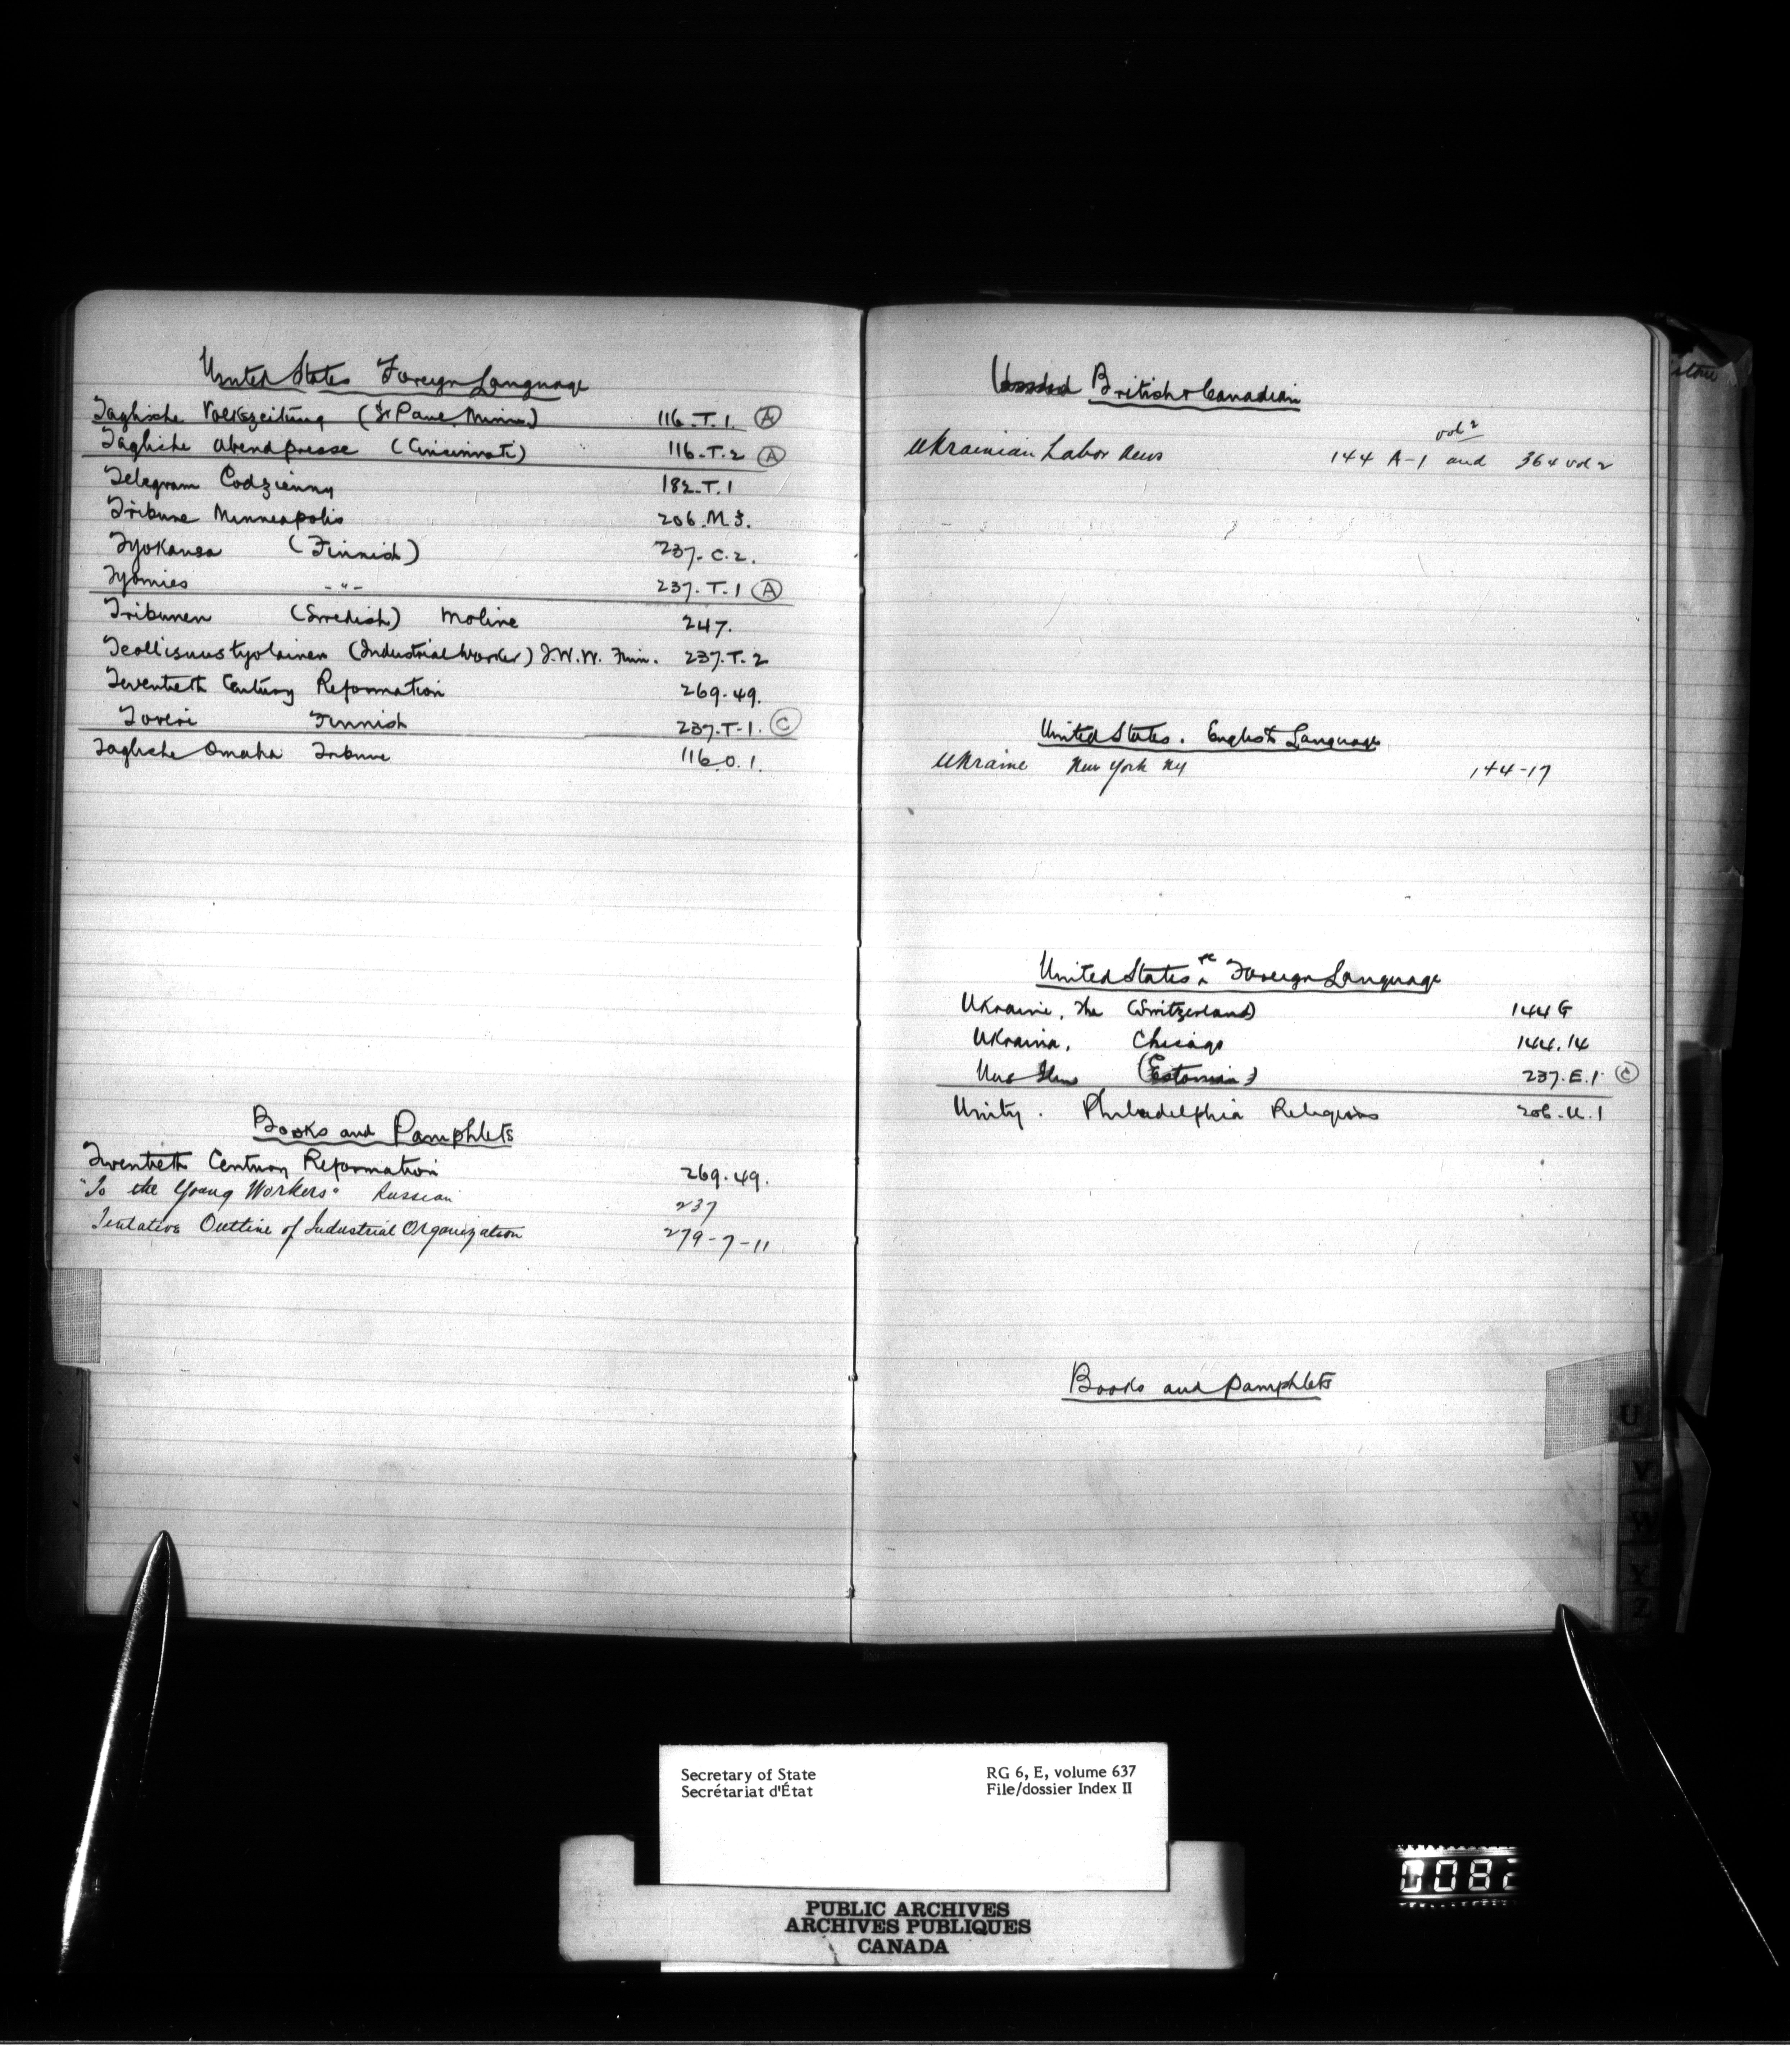 United States Foreign Language
Taglische Volkszeitung (St Paul, Minn.) 116.T.1. A
Tagliche Abendpresse (Cincinnati) 116.T.2 A
Telegram Codzienny 182.T.1
Tribune Minneapolis 206.M.3.
Tyokansa (Finnish) 237.C.2.
Tyomies -"- 237.T.1 A
Tribunen (Swedish) Moline 247.
Teollisuustyolainen (Industrial Worker) I.W.W. Finn. 237.T.2
Twentieth Century Reformation 269.49.
Toveri Finnish 237.T-1. C
Tagliche Omaha Tribune 116.O.1.
Books and Pamphlets
Twentieth Century Reformation 269.49.
"To the Young Workers" Russian 237
Tentative Outline of Industrial Organization 279-7-11
British & Canadian
vol 2
Ukrainian Labor News 144 A-1 and 364 vol 2
United States. English Language
Ukraine New York NY 144-17
United States etc Foreign Language
Ukraine, The (Switzerland) 144 G
Ukraina, Chicago 144.14
Uus Ilm (Estonian) 237.E.1 C
Unity. Philadelphia Religious 206.U.1
Books and Pamphlets
U
V
W
Y
Z
Secretary of State
Secrétariat d'État
RG 6, E, volume 637
File/dossier Index II
PUBLIC ARCHIVES
ARCHIVES PUBLIQUES
CANADA
0082